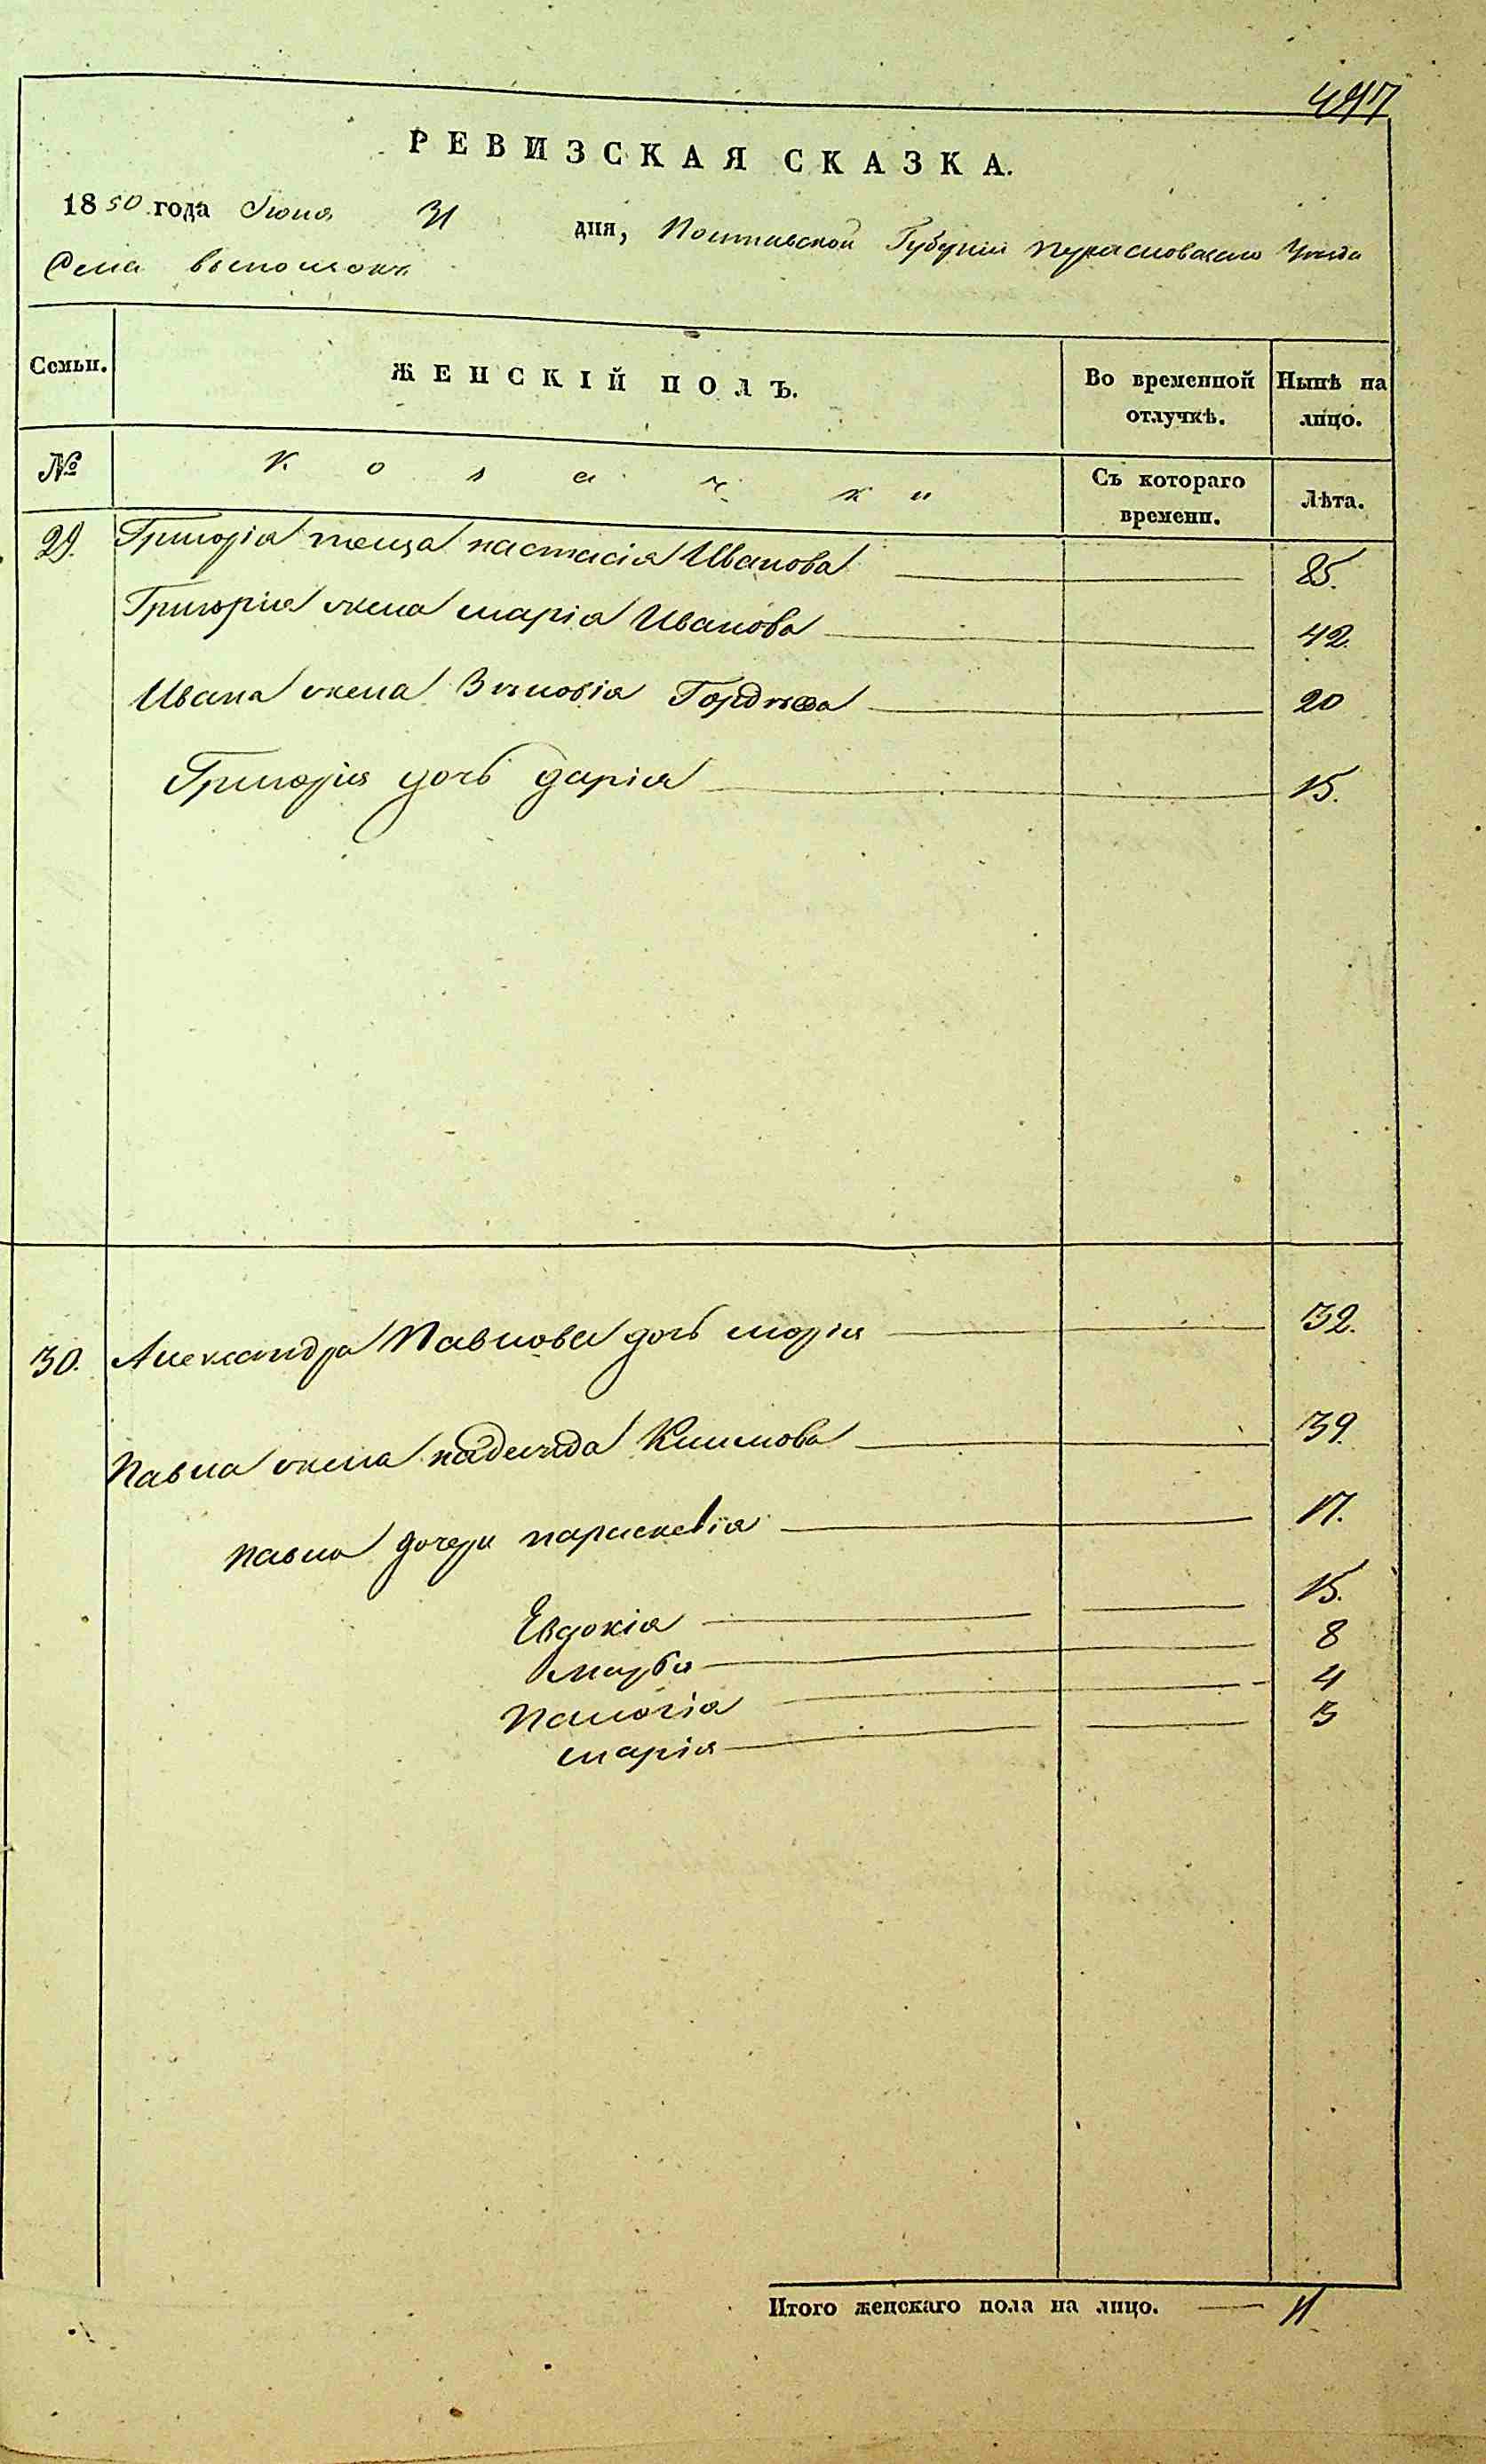 497
РЕВИЗСКАЯ СКАЗКА.
1850 года Июня 31 дня, Полтавской Губерніи Переяловскаго Уезда
Села Выполцокъ
Семьи. ЖЕНСКІЙ ПОЛЪ. Во временной отлучкѣ. Нынѣ на лицо.
№ Козачки Съ котораго времени. Лѣта.
29. Григорія теща настасія Иванова 85.
Григорія жена марія Иванова 42
Ивана жена Зѣновія Гордѣева 20
Григорія дочь дарія 15.
30. Александра Павлова дочь марія 32.
Павла жена надежда Климова 39.
павла дочери параскевія 17.
Евдокія 15.
Марѳа 8
Палагія 4
марія 3
Итого женскаго пола на лицо. 11